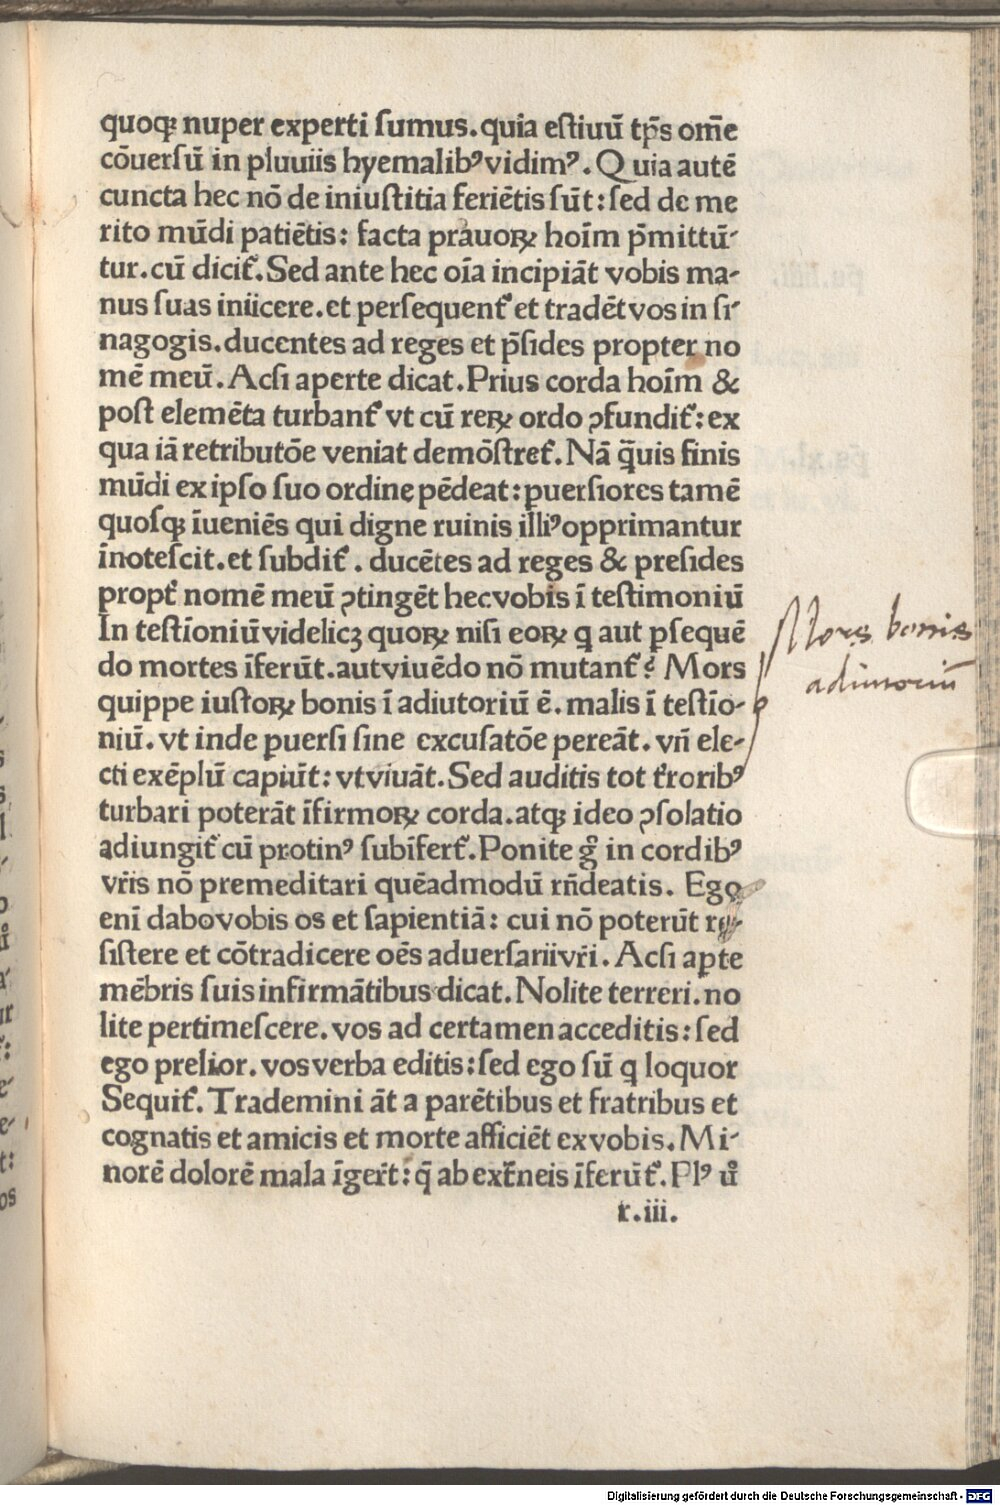 quoqꝫ nuper experti ſumus. quia eſtiuū tp̄s om̄e
cōuerſū in pluuiis hyemalibꝰ vidimꝰ. Quia autē
cuncta hec nō de iniuſtitia feriētis ſūt: ſed de me
rito mūdi patiētis: facta prauoꝝ hoīm p̄mittū-
tur. cū dicit᷑. Sed ante hec oīa incipiāt vobis ma-
nus ſuas iniicere. et perſequent᷑ et tradēt vos in ſi-
nagogis. ducentes ad reges et p̄ſides propter no
mē meū. Acſi aperte dicat. Prius corda hoīm &
poſt elemēta turbant᷑ vt cū reꝝ ordo ꝯfundit᷑: ex
qua iā retributōe veniat demōſtret᷑. Nā q̄uis finis
mūdi ex ipſo ſuo ordine pēdeat: ꝑuerſiores tamē
quoſqꝫ īueniēs qui digne ruinis illiꝰ opprimantur
īnoteſcit. et ſubdit᷑. ducētes ad reges & preſides
propt᷑ nomē meū ꝯtingēt hec vobis ī teſtimoniū
In teſtīoniū videlicꝫ quoꝝ niſi eoꝝ q aut ꝑſequē
do mortes īferūt. aut viuēdo nō mutant᷑? Mors
quippe iuſtoꝝ bonis ī adiutoriū ē. malis ī teſtīo-
niū. vt inde ꝑuerſi ſine excuſatōe pereāt. vn̄ ele-
cti exēplū capiūt: vt viuāt. Sed auditis tot t᷑roribꝰ
turbari poterāt īfirmoꝝ corda. atqꝫ ideo ꝯſolatio
adiungit᷑ cū protinꝰ ſubīfert᷑. Ponite gͦ in cordibꝰ
vr̄is nō premeditari quēadmodū rn̄deatis. Ego
eni dabo vobis os et ſapientiā: cui nō poterūt re-
ſiſtere et cōtradicere oēs aduerſarii vr̄i. Acſi aꝑte
mēbris ſuis infirmātibus dicat. Nolite terreri. no
lite pertimeſcere. vos ad certamen acceditis: ſed
ego prelior. vos verba editis: ſed ego ſū q loquor
Sequit᷑. Trademini āt a parētibus et fratribus et
cognatis et amicis et morte afficiēt ex vobis. Mi-
norē dolorē mala īgerūt: q̄ ab ext᷑neis īferūt᷑. Plꝰ uͦ
r.iii.
Mors bonis
adiutoriū
Digitalisierung gefördert durch die Deutsche Forschungsgemeinschaft - DFG